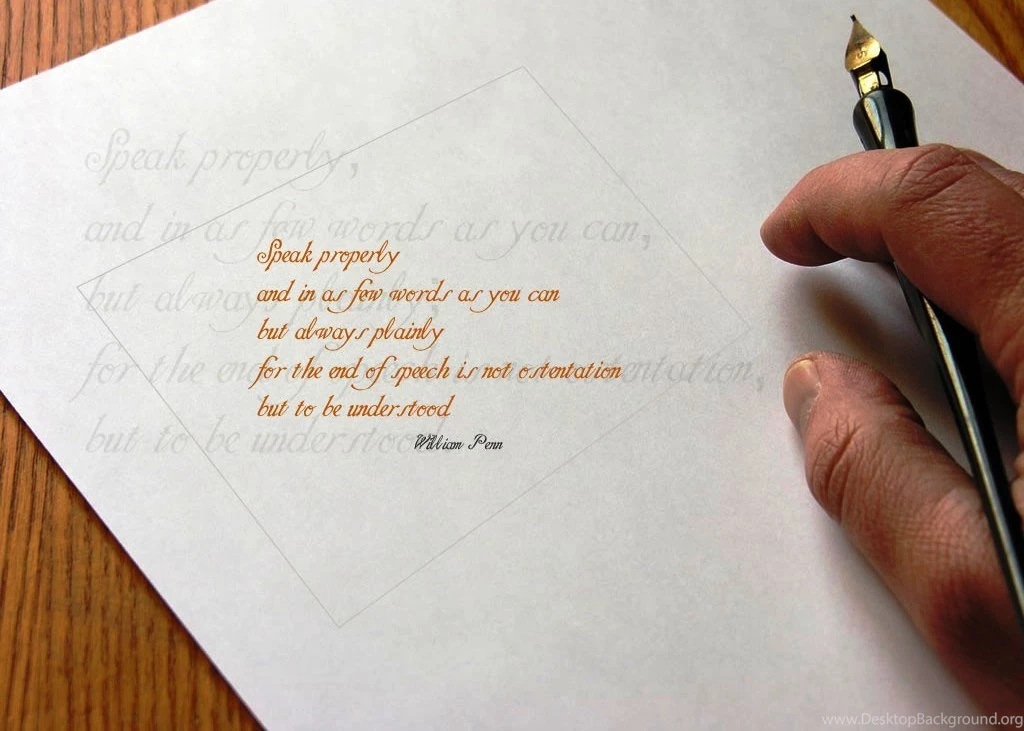 Speak properly,
and in as few words as you can,
but always plainly;
for the end of speech is not ostentation,
but to be understood.
Speak properly
and in as few words as you can
but always plainly
for the end of speech is not ostentation
but to be understood
William Penn
www.DesktopBackground.org